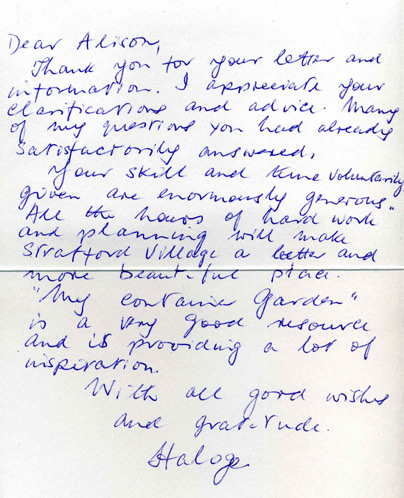 Dear Alison,
Thank you for your letter and
information. I appreciate your
clarifications and advice. Many
of my questions you had already
satisfactorily answered.
Your skill and time voluntarily
given are enormously generous"
All the hours of hard work
and planning will make
Stratford Village a better and
more beautiful place.
"My container Garden"
is a very good resource
and is providing a lot of
inspiration.
With all good wishes
and gratitude.